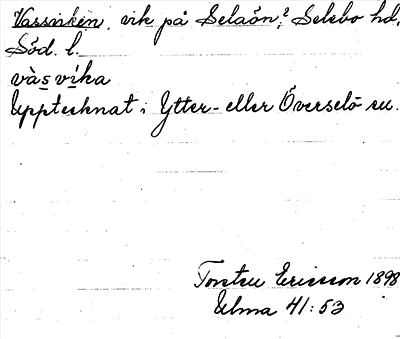 Vassviken, vik på Selaön,? Selebo hd,
Söd. l.
vàsvika
Upptecknat i Ytter- eller Överselö sn.
Torsten Ericsson 1898
Ulma 41:53